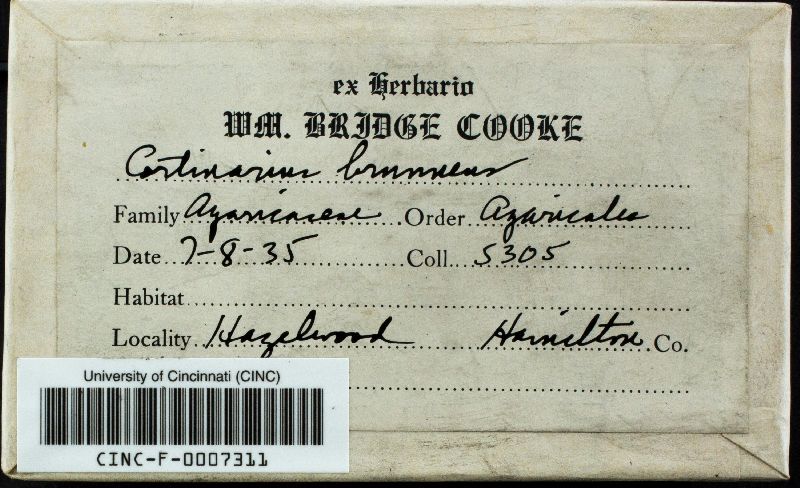 ex Herbario
WM. BRIDGE COOKE
Cortinarius brunneus
Family Agaricaceae Order Agaricales
Date 7-8-35 Coll. 5305
Habitat
Locality Hazelwood Hamilton Co.
University of Cincinnati (CINC)
CINC-F-0007311